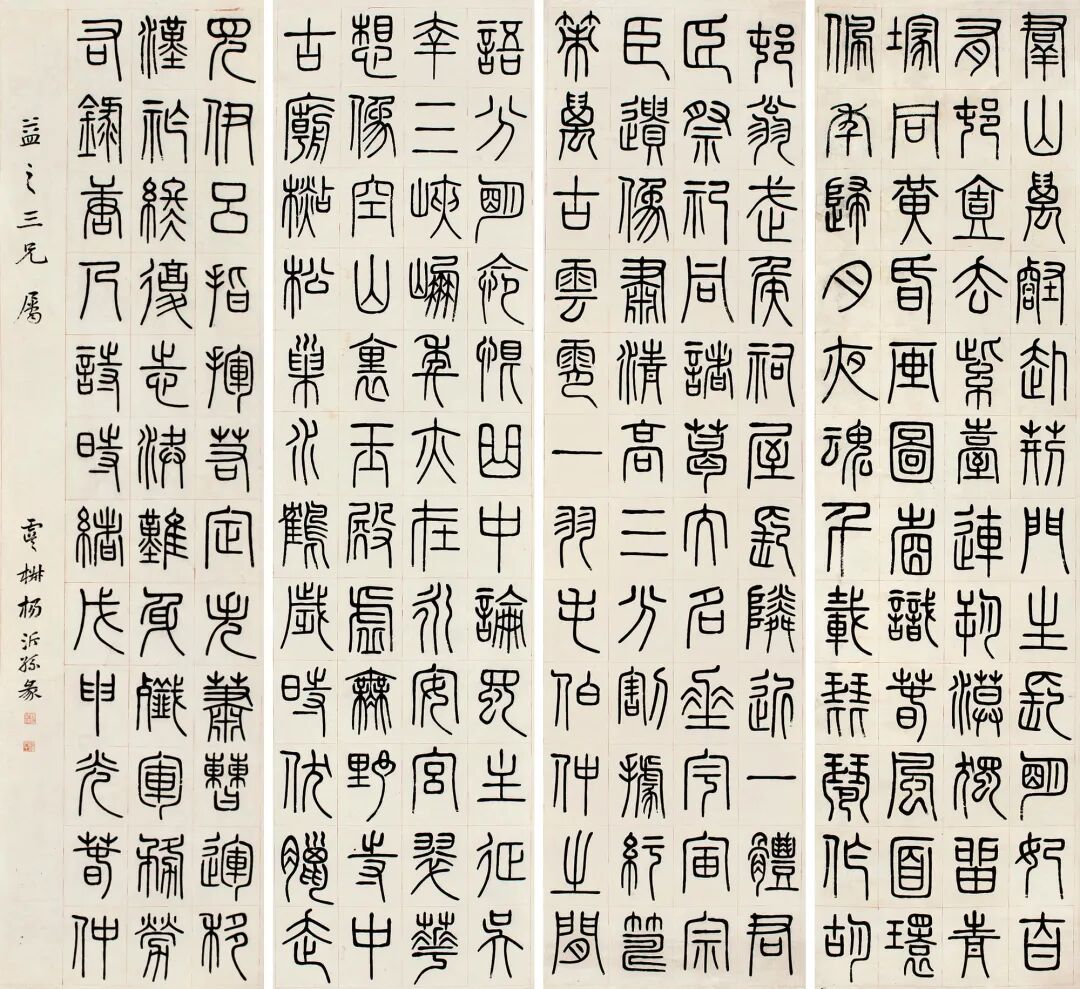 羣山萬壑赴荊門生長明妃尚
有邨壹去紫臺連朔漠獨留青
塚向黃昏畫圖省識春風面環
佩歸月夜魂千載琵琶作胡
語分明怨恨曲中論蜀主征吳
幸三峽崩年亦在永安宮翠華
想像空山裏玉殿虛無野寺中
古廟杉松巢水鶴歲時伏臘走
邨翁武侯祠屋長鄰近一體君
臣祭祀同諸葛大名垂宇宙宗
臣遺像肅清高三分割據紆籌
策萬古雲霄一羽毛伯仲之間
見伊呂指揮若定失蕭曹運移
漢祚終復志決難身殲軍務勞
右錄唐人詩時戊申春仲
益之三兄屬
楊沂孫篆